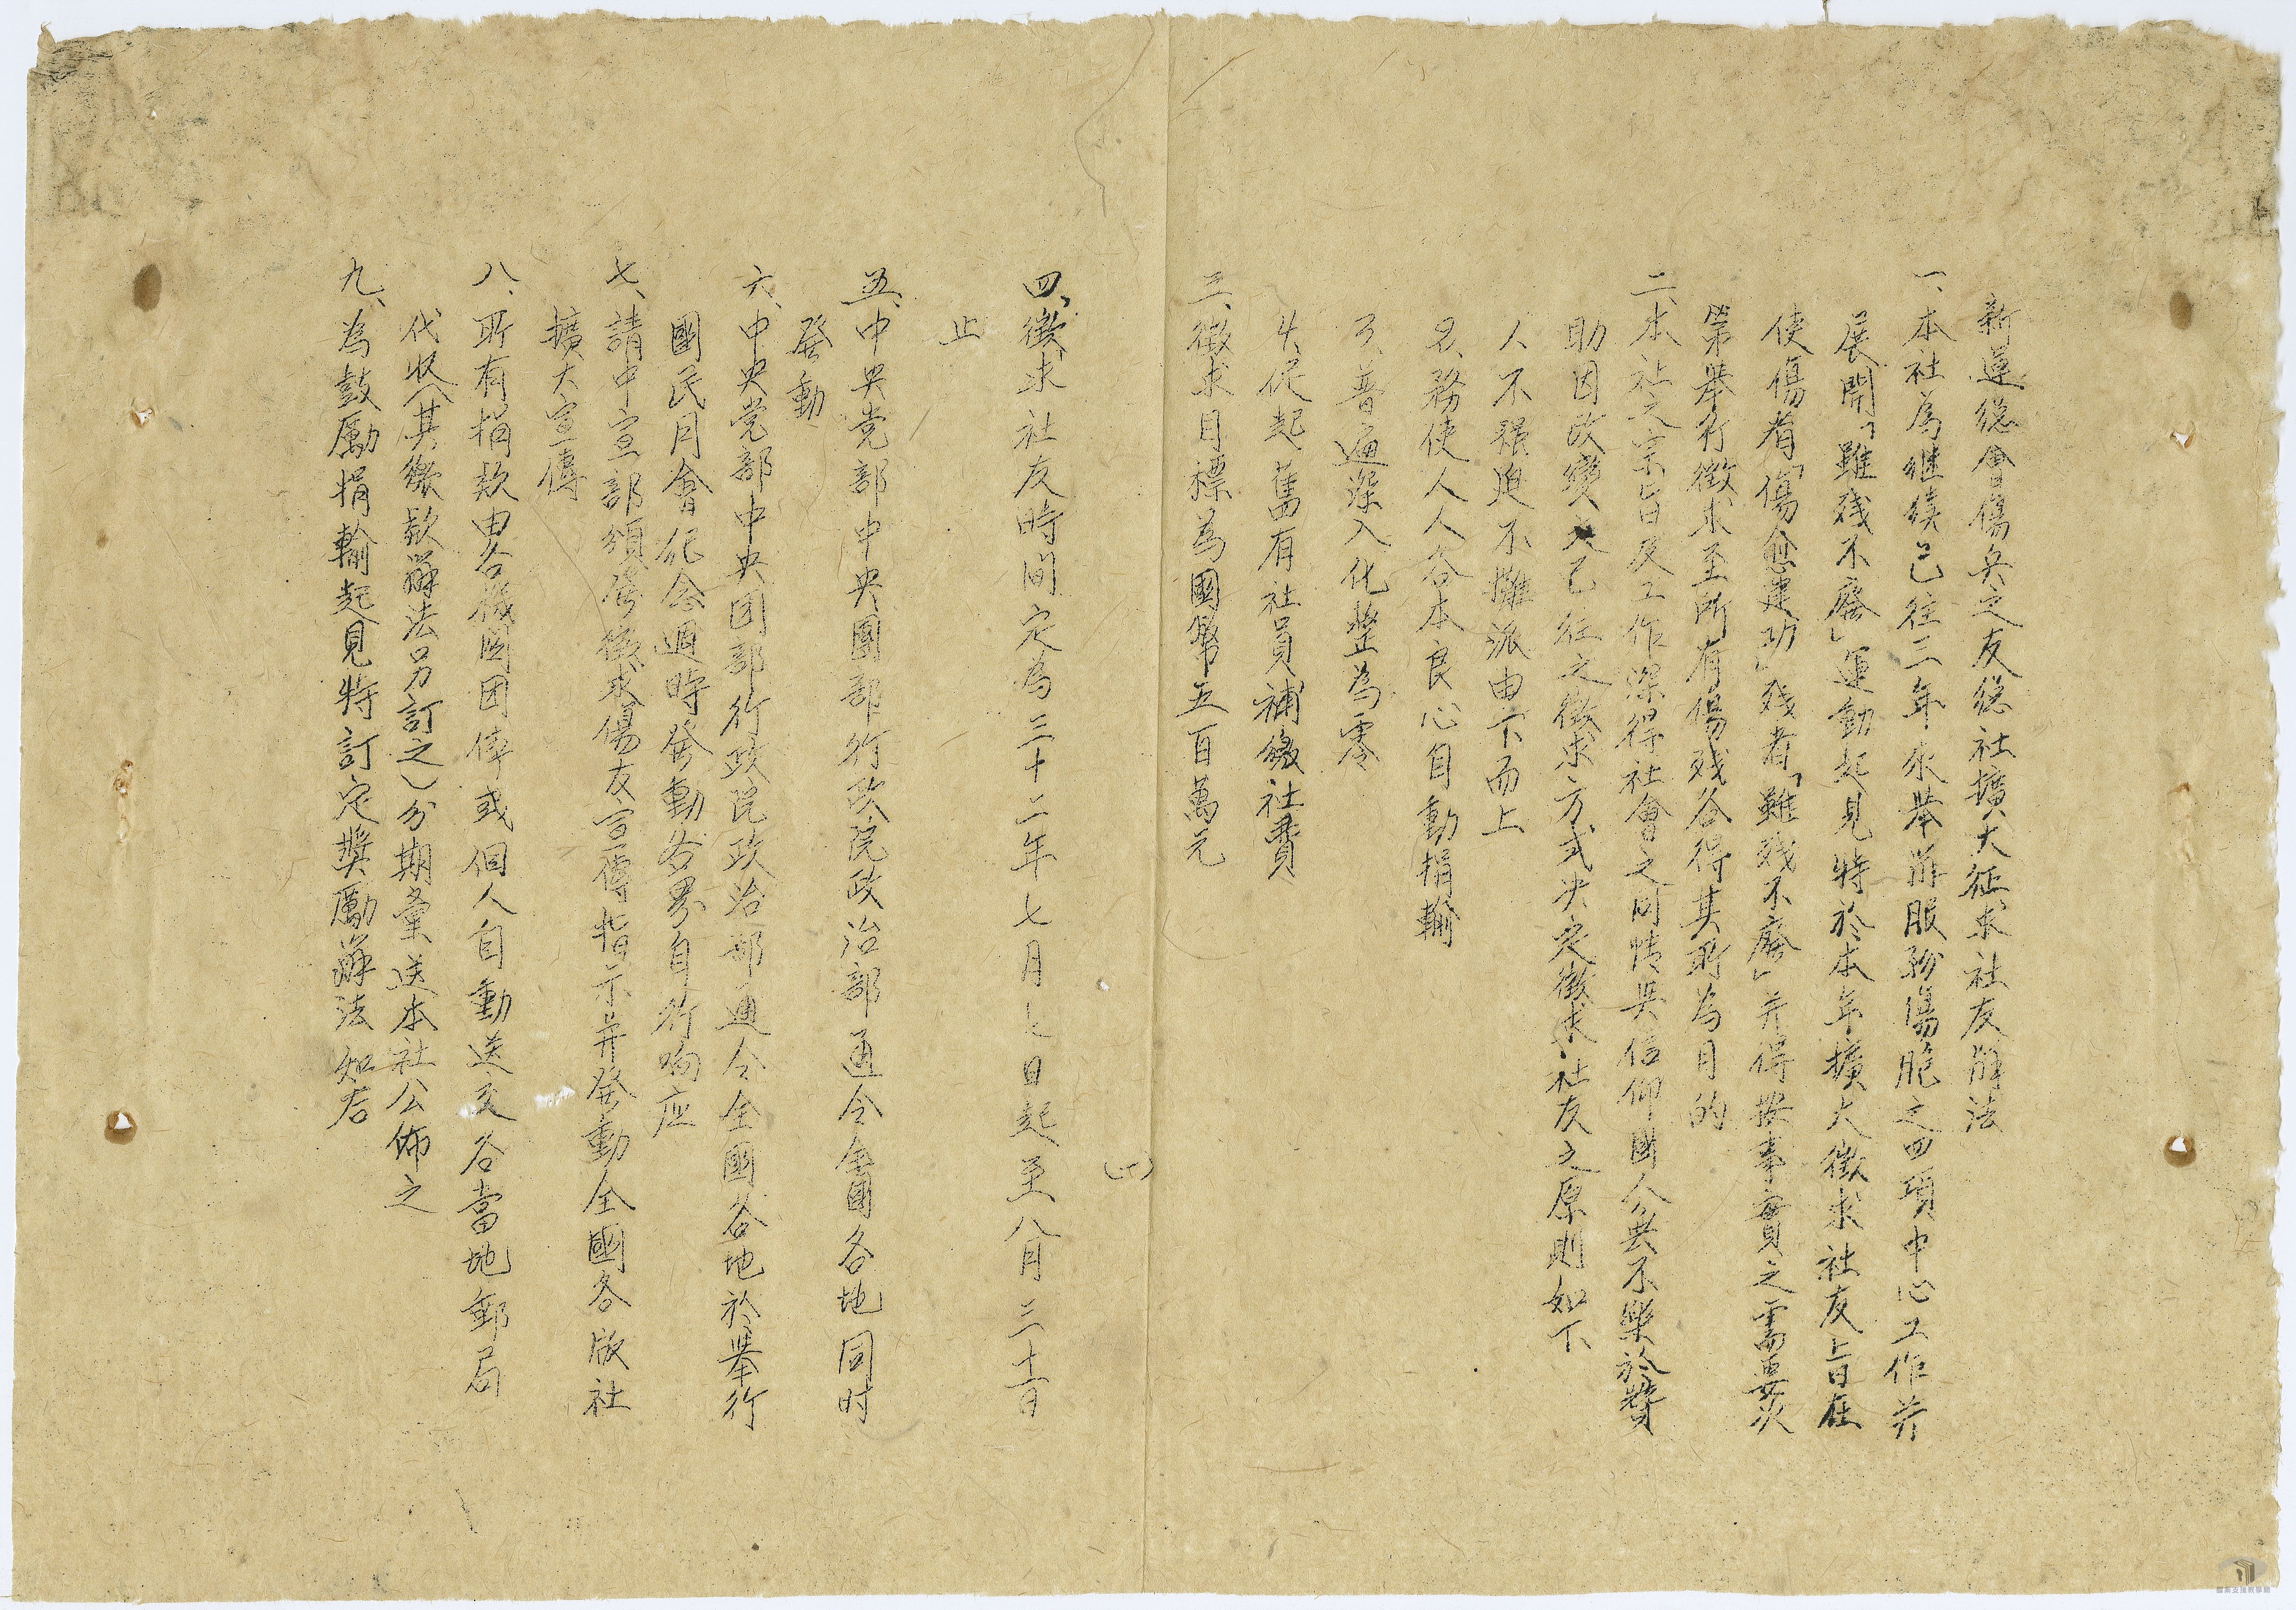 新運總會傷兵之友總社擴大征求社友辦法
一、本社為继续已往三年來舉辦服務傷胞之四項中心工作并
展開「雖残不廢」運動起見特於本年擴大徵求社友旨在
使傷者「傷愈建功」残者「雖残不廢」并得按事實之需要災
第舉行徵求至所有傷残各得其所為目的
二、本社之宗旨及工作深得社會之同情與信仰國人共不樂於贊
助因改變已往之徵求方式决定徵求社友之原則如下
人不强迫不攤派由下而上
2、務使人人各本良心自動捐輸
3、普遍深入化整為零
4、促起舊有社員補繳社費
三、徵求目標為國幣五百萬元
(一)
四、徵求社友時间定為三十二年七月七日起至八月三十一日
止
五、中央党部中央團部行政院政治部通令全國各地同时
發動
六、中央党部中央团部行政院政治部通令全國各地於舉行
國民月會纪念週時發動各界自行响应
七、請中宣部頒發徵求傷友宣傳指示并發動全國各版社
擴大宣傳
八、所有捐欵由各機関团体或個人自動送交各當地郵局
代收(其繳欵辦法另訂之)分期彙送本社公佈之
九、為鼓勵捐輸起見特訂定獎勵辦法如右